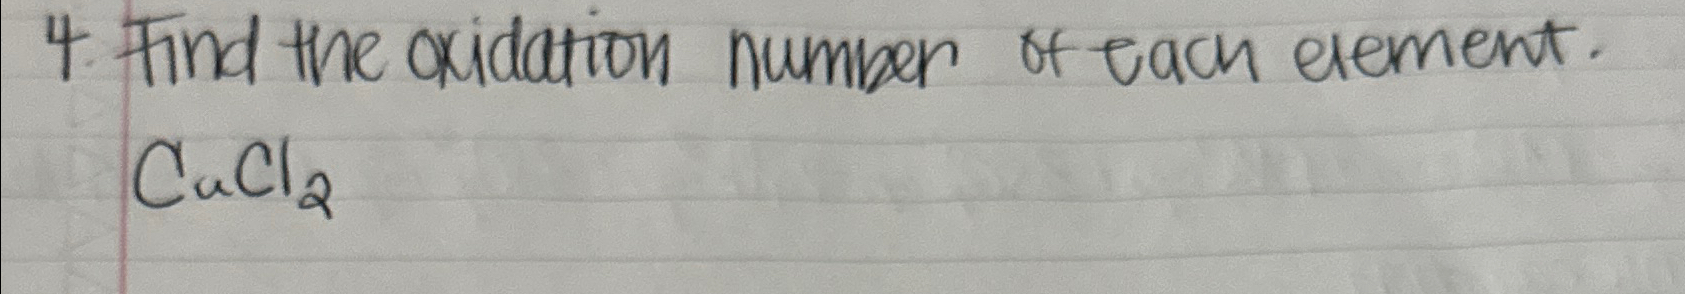 4. Find the oxidation number of each element.
CuCl₂